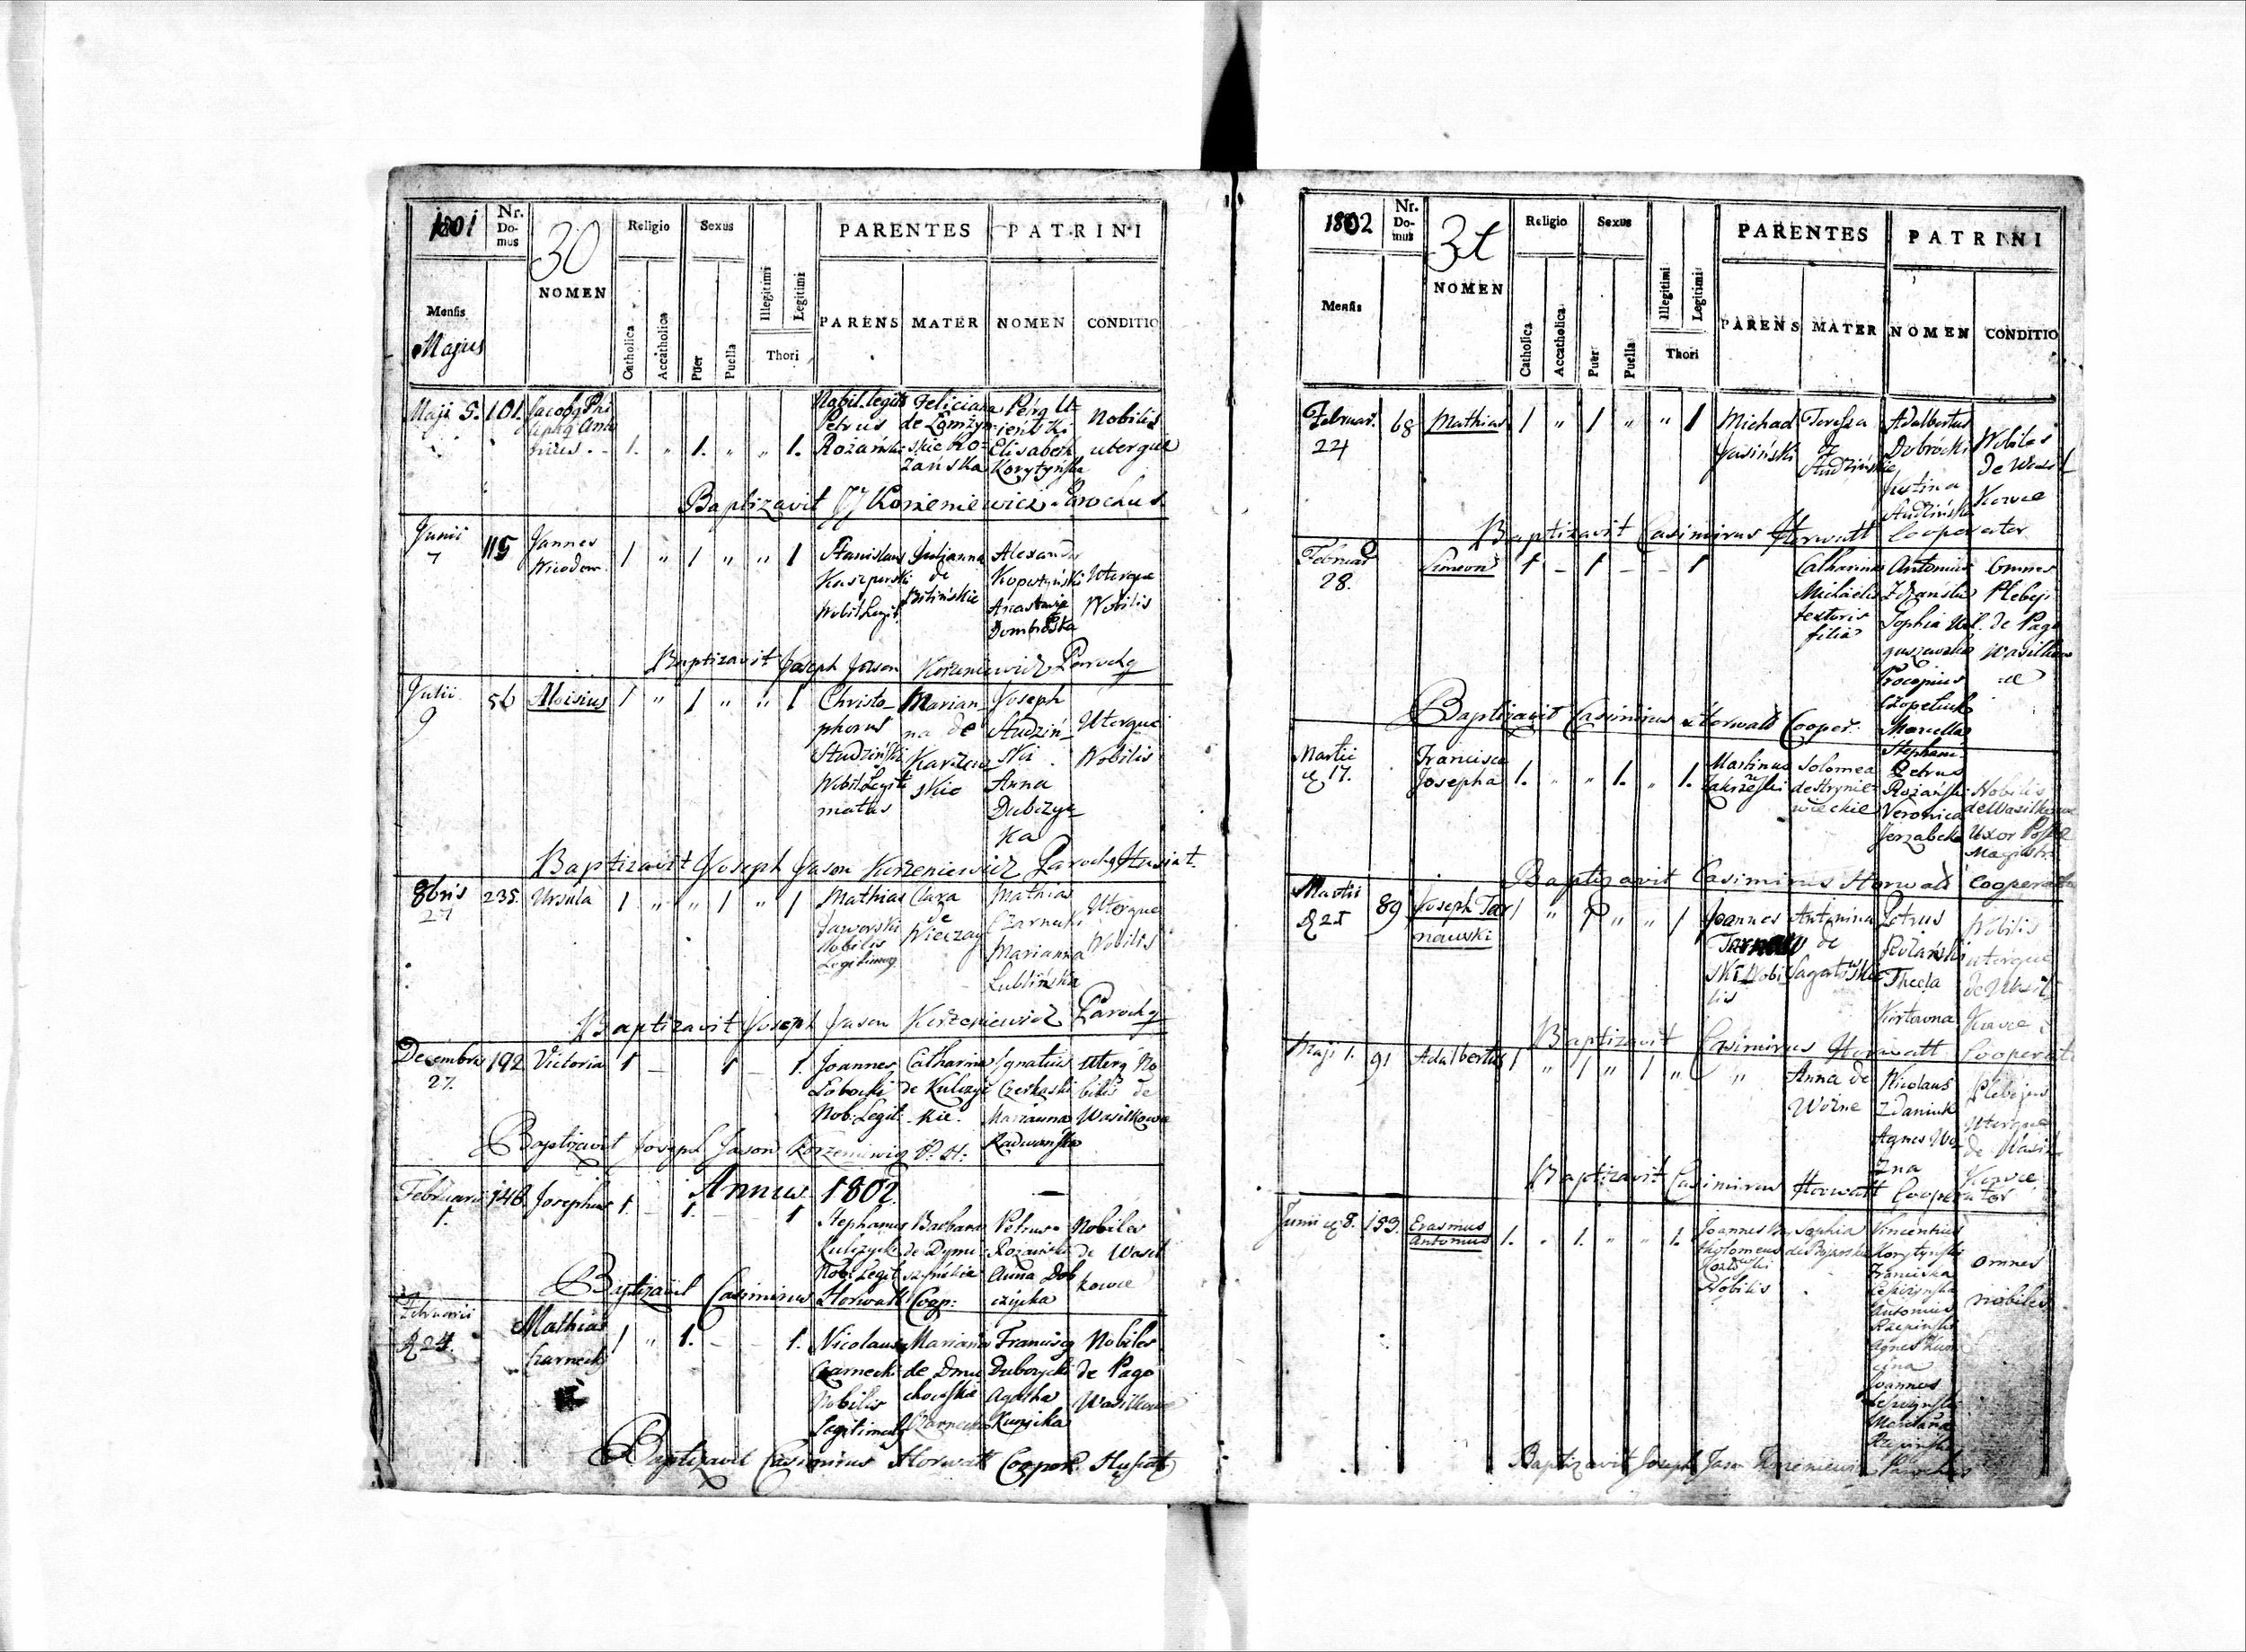 1801
Nr. Domus
30
NOMEN
Religio
Sexus
PARENTES
PATRINI
Mensis
Majus
Catholica
Accatholica
Puer
Puella
Illegitimi
Legitimi
Thori
PARENS
MATER
NOMEN
CONDITIO
Maji 5.
101.
1. " 1. " " 1.
Nobil. legit
Petrus
Rożański
Feliciana
de Łomżyn
skie Ro-
żańska
Elisabeth
Korytyńska
Nobilis
uterque
Baptizavit JJ Korzeniewicz Parochus
Junii
7
115
Joannes
Nicodem
1 " 1 " " 1
Stanislaus
Kasperski
Nobil Legit
Julianna
de
Bilińskie
Alexander
Kopestyński
Anastasia
Dombroska
Uterque
Nobilis
Baptizavit Joseph Jason Korzeniewicz Parochq
Julii
9
56
Aloisius
1 " 1 " " 1
Christo-
phorus
Studziński
Nobil Legiti
matus
Marian-
na de
Karżew
skie
Joseph
Studziń-
ski
Anna
Dubczyc
ka
Uterque
Nobilis
Baptizavit Joseph Jason Korzeniewicz Parochq Husiat.
8bris
27
235.
Ursula
1 " " 1 " 1
Mathias
Jaworski
Nobilis
Legitimq
Clara
de
Wieczay
Mathias
Czarnecki
Marianna
Lublińska
Uterque
Nobilis
Baptizavit Joseph Jason Korzeniewicz Parochq
Decembris
27.
192
Victoria
1 – 1 – 1.
Joannes
Łobocki
Nob: Legit:
Catharina
de Kulczyc
kie.
Ignatius
Czerkaski
Marianna
Radwańska
Uterq No
bilis de
Wasilkowce
Baptizavit Joseph Jason Korzeniewicz P. H:
Annus 1802
Februarii
1.
148.
Josephus
1. – 1. – 1
Stephanus
Kulczycki
Nob: Legit
Barbara
de Dymi-
Petrus
Rożański
Anna Dob
czycka
Nobiles
de Wasil
kowce
Baptizavit Casimirus Horwatt Coop:
Februarii
24.
Mathias
Czarnecki
1 " 1. – – 1.
Nicolaus
Czarnecki
Nobilis
Legitimq
Marianna
de Dmu
chowskie
Czarnecka
Franciscq
Dubczycki
Agatha
Nobiles
de Pago
Wasilkowce
Baptizavit Casimirus Horwatt Cooper. Husiat
1802
Nr. Domus
31
NOMEN
Religio
Sexus
PARENTES
PATRINI
Mensis
Catholica
Accatholica
Puer
Puella
Illegitimi
Legitimi
Thori
PARENS
MATER
NOMEN
CONDITIO
Februar.
24
68
Mathias
1 " 1 " " 1
Michael
Jasiński
Teressa
Z
Studzińskie
Adalbertus
Dobrocki
Justina
Studzińska
Nobiles
de Wasil
kowce
Baptizavit Casimirus Horwatt Cooperator
Februar
28.
Simeon
1 – 1 – – 1
Catharina
Michaelis
textoris
filia
Antonius
Zdrański
Sophia
Procopius
Czopeliuk
Marcella
Omnes
Plebeji
de Pago
Wasilkow
ce
Baptizavit Casimirus Horwatt Cooper.
Martii
17.
Francisca
Josepha
1. " " 1. " 1.
Martinus
Zakrzeski
Solomea
de Hrynie-
wieckie
Petrus
Rożański
Veronica
Jerzabcka
Nobilis
de Wasilkowce
Uxor Postae
Magistri
Baptizavit Casimirus Horwatt Cooperator
Martii
21
89
Joseph Tar
nawski
1 " 1 " " 1
Joannes
Tarnaw
ski Nobi
lis
Antonina
de
Petrus
Rożański
Thecla
Nobilis
uterque
de Wasil
kowce
Baptizavit Casimirus Horwatt Cooperat
Maji 1.
91
Adalbertus
1 " 1 " 1 "
"
Anna de
Woźne
Nicolaus
Zdaniuk
Agnes Wo
zna
Plebejus
Uterque
de Wasil
kowce
Baptizavit Casimirus Horwatt Cooperator
Junii 8.
153.
Erasmus
Antonius
1. " 1. " " 1.
Joannes Ba
rtholomeus
Kozłowski
Nobilis
Sophia
de Bojarskie
Vincentius
Korytyński
Franciska
Antonius
Rzepiński
Joannes
Marianna
Omnes
nobiles
Baptizavit Joseph Jason Korzeniewicz Parochus